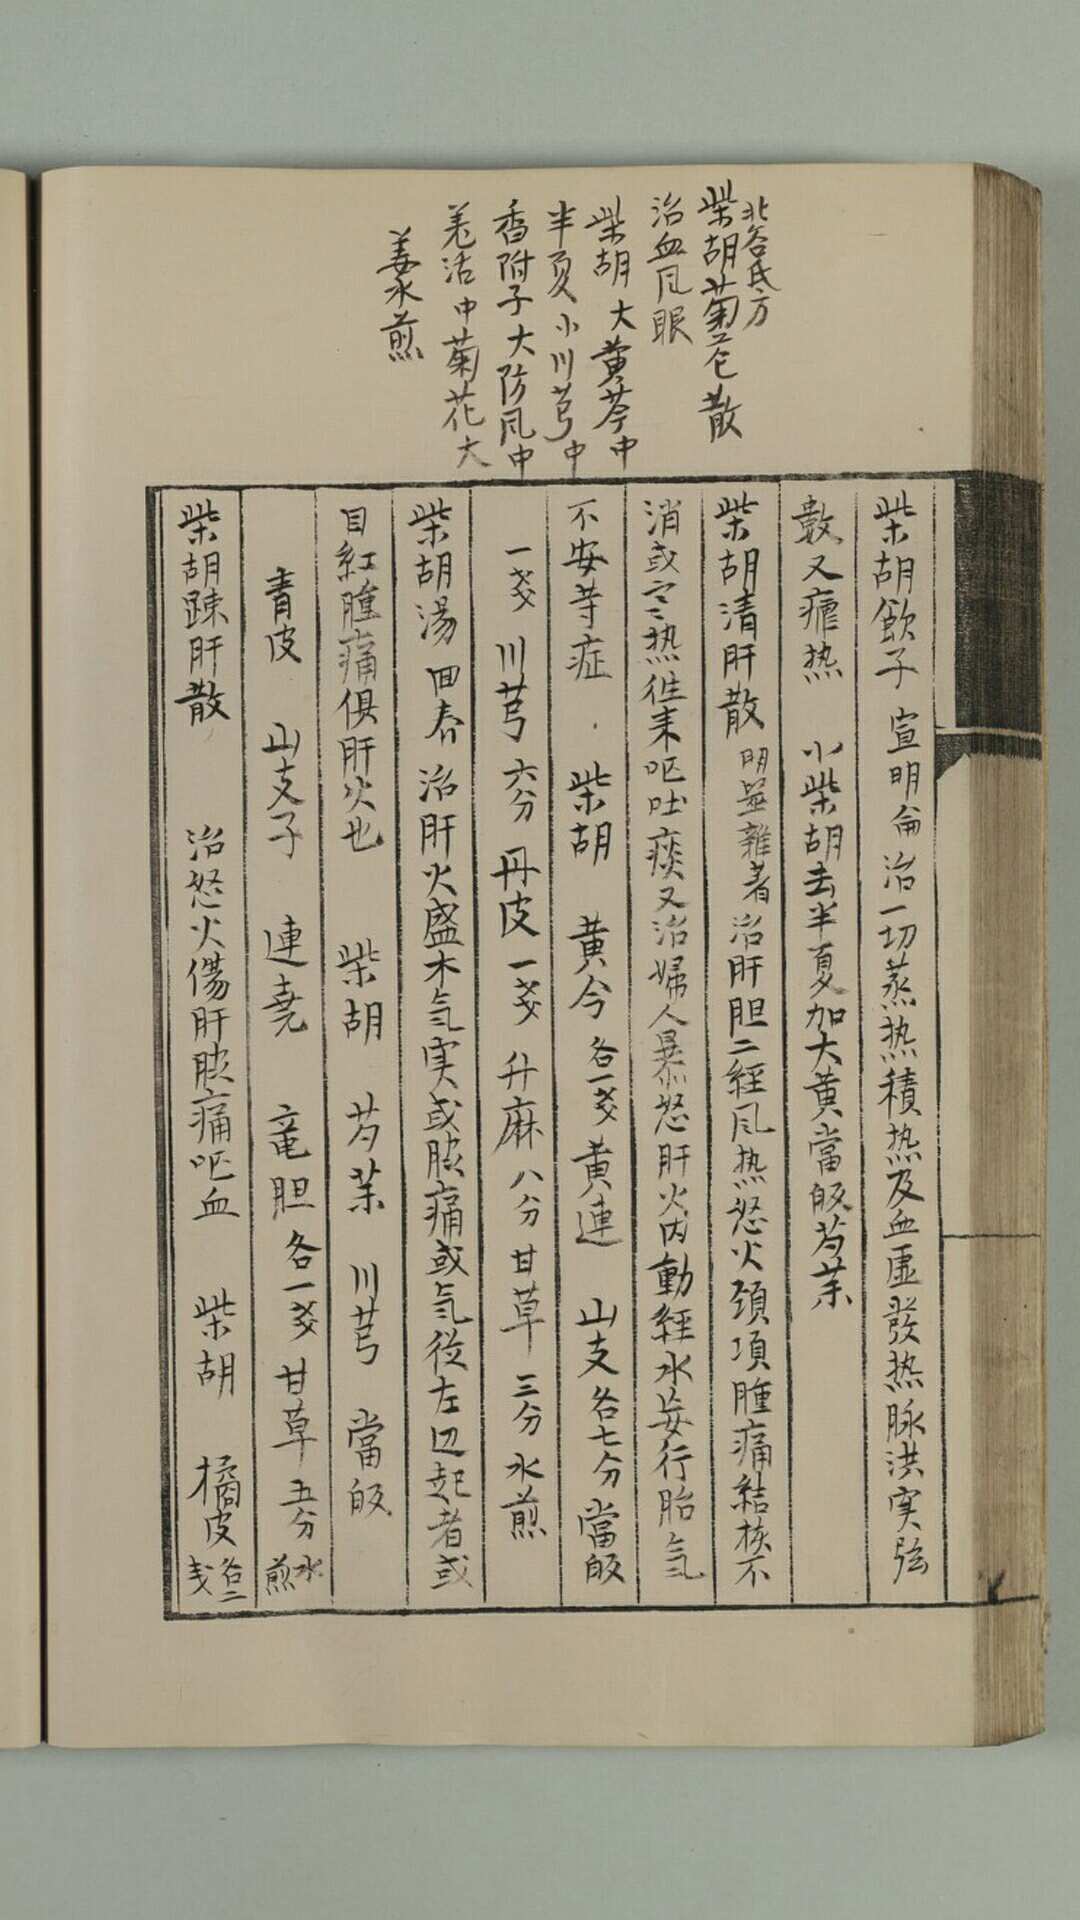 北谷氏方
柴胡菊花散
治血風眼
柴胡大黄芩中
半夏小川芎中
香附子大防風中
羗活中菊花大
姜水煎
柴胡飲子 宣明侖 治一切蒸热積热及血虚發热脉洪実弦
數又瘧热 小柴胡去半夏加大黄當皈芍薬
柴胡清肝散 明医雜著 治肝胆二經風热怒火頚項腫痛結核不
消或寒热徃来呕吐痰又治婦人暴怒肝火内動經水妄行胎气
不安等症 柴胡 黄今各一戔黄連 山支各七分當皈
一戔 川芎六分 丹皮一戔 升麻八分甘草三分水煎
柴胡湯 回春 治肝火盛木气実或脇痛或气從左辺起者或
目紅腫痛俱肝火也 柴胡 芍薬 川芎 當皈
青皮 山支子 連堯 竜胆各一戔甘草五分水煎
柴胡踈肝散 治怒火傷肝脇痛呕血 柴胡 橘皮各二戔